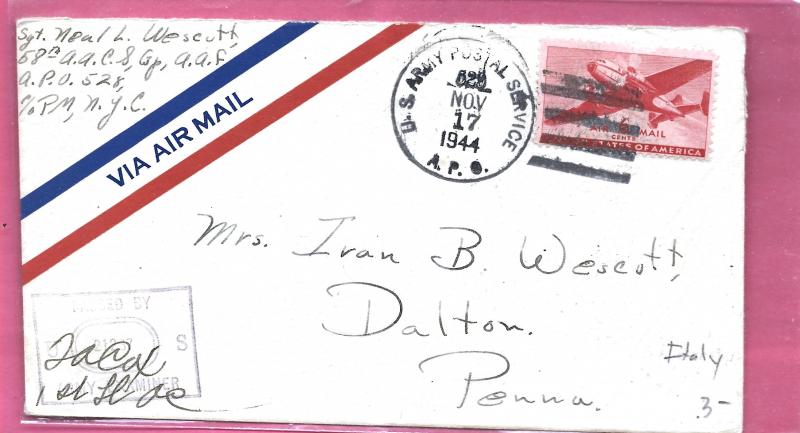 Sgt. Neal L. Wescott
58th A.A.C.S. Gp, A.A.F
A.P.O. 528,
℅ PM, N.Y.C.
VIA AIR MAIL
U.S. ARMY POSTAL SERVICE
528
NOV
17
1944
A.P.O.
6
AIR MAIL
CENTS
UNITED STATES OF AMERICA
Mrs. Ivan B. Wescott,
Dalton.
Penna.
PASSED BY
S
ARMY EXAMINER
1st Lt
Italy
3-